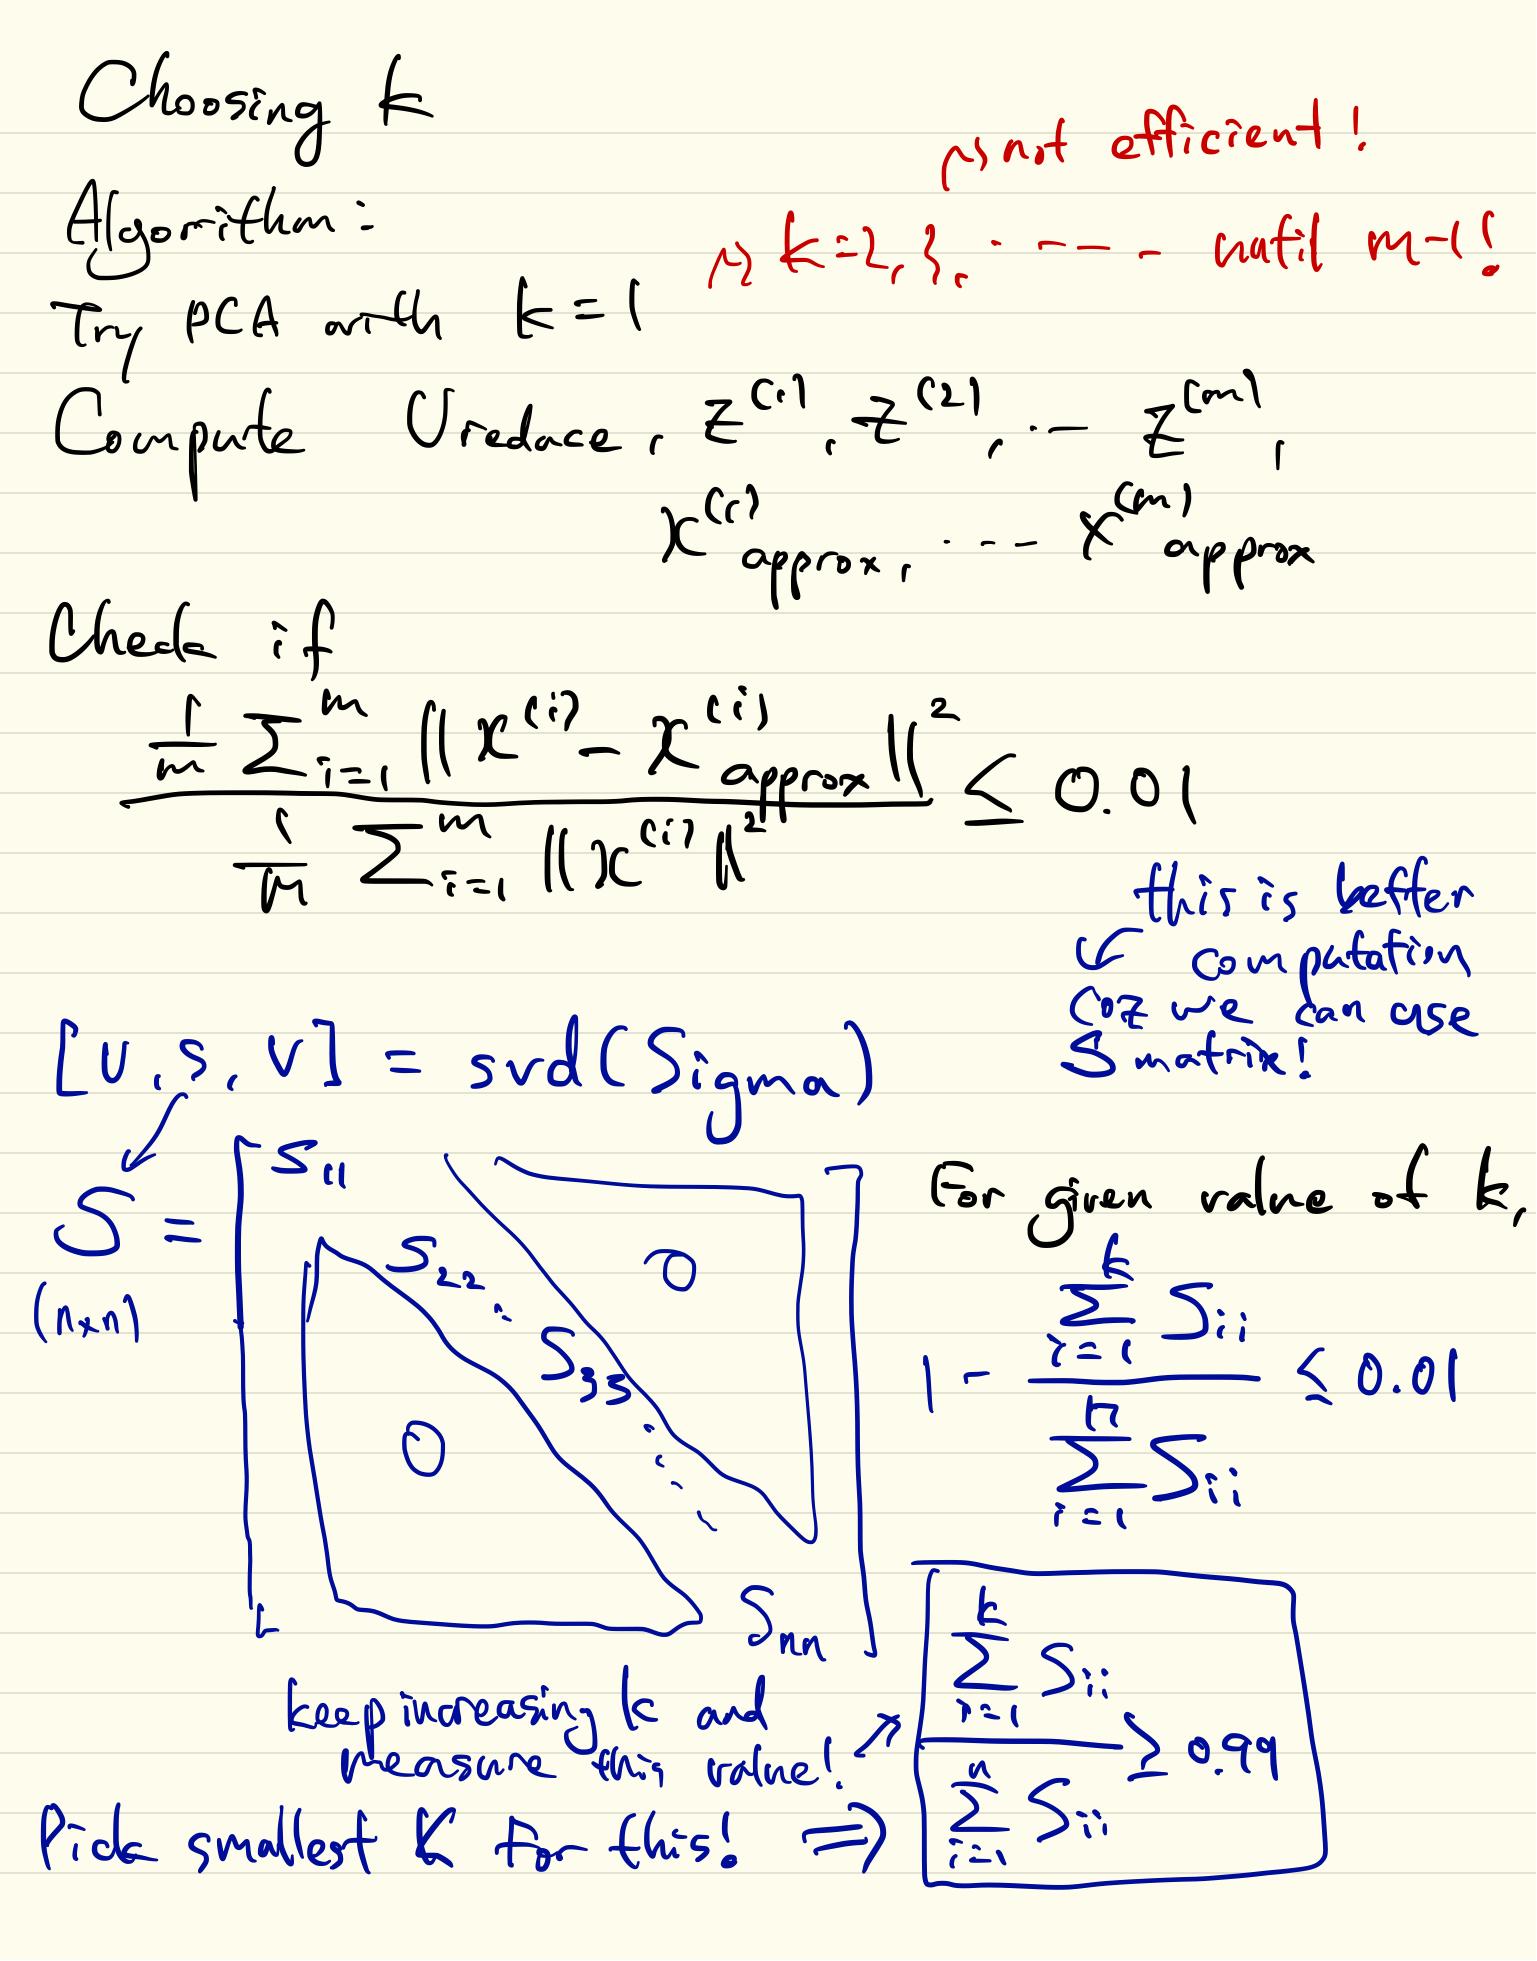 Choosing k
↝ not efficient!
Algorithm:
↝ k=2, 3, ..... until m-1!
Try PCA with k=1
Compute Ureduce, z^(1), z^(2), ... z^(m),
x^(1)approx, ... x^(m)approx
Check if
1/m Σ_{i=1}^m ||x^(i) - x^(i)approx||^2
≤ 0.01
1/m Σ_{i=1}^m ||x^(i)||^2
this is better
↙ computation
coz we can use
S matrix!
[U, S, V] = svd(Sigma)
S =
(n×n)
S11
S22
S33
Snn
0
0
For given value of k,
1 - (Σ_{i=1}^k Sii) / (Σ_{i=1}^n Sii) ≤ 0.01
keep increasing k and
measure this value! ↗
(Σ_{i=1}^k Sii) / (Σ_{i=1}^n Sii) ≥ 0.99
Pick smallest K for this! ⇒